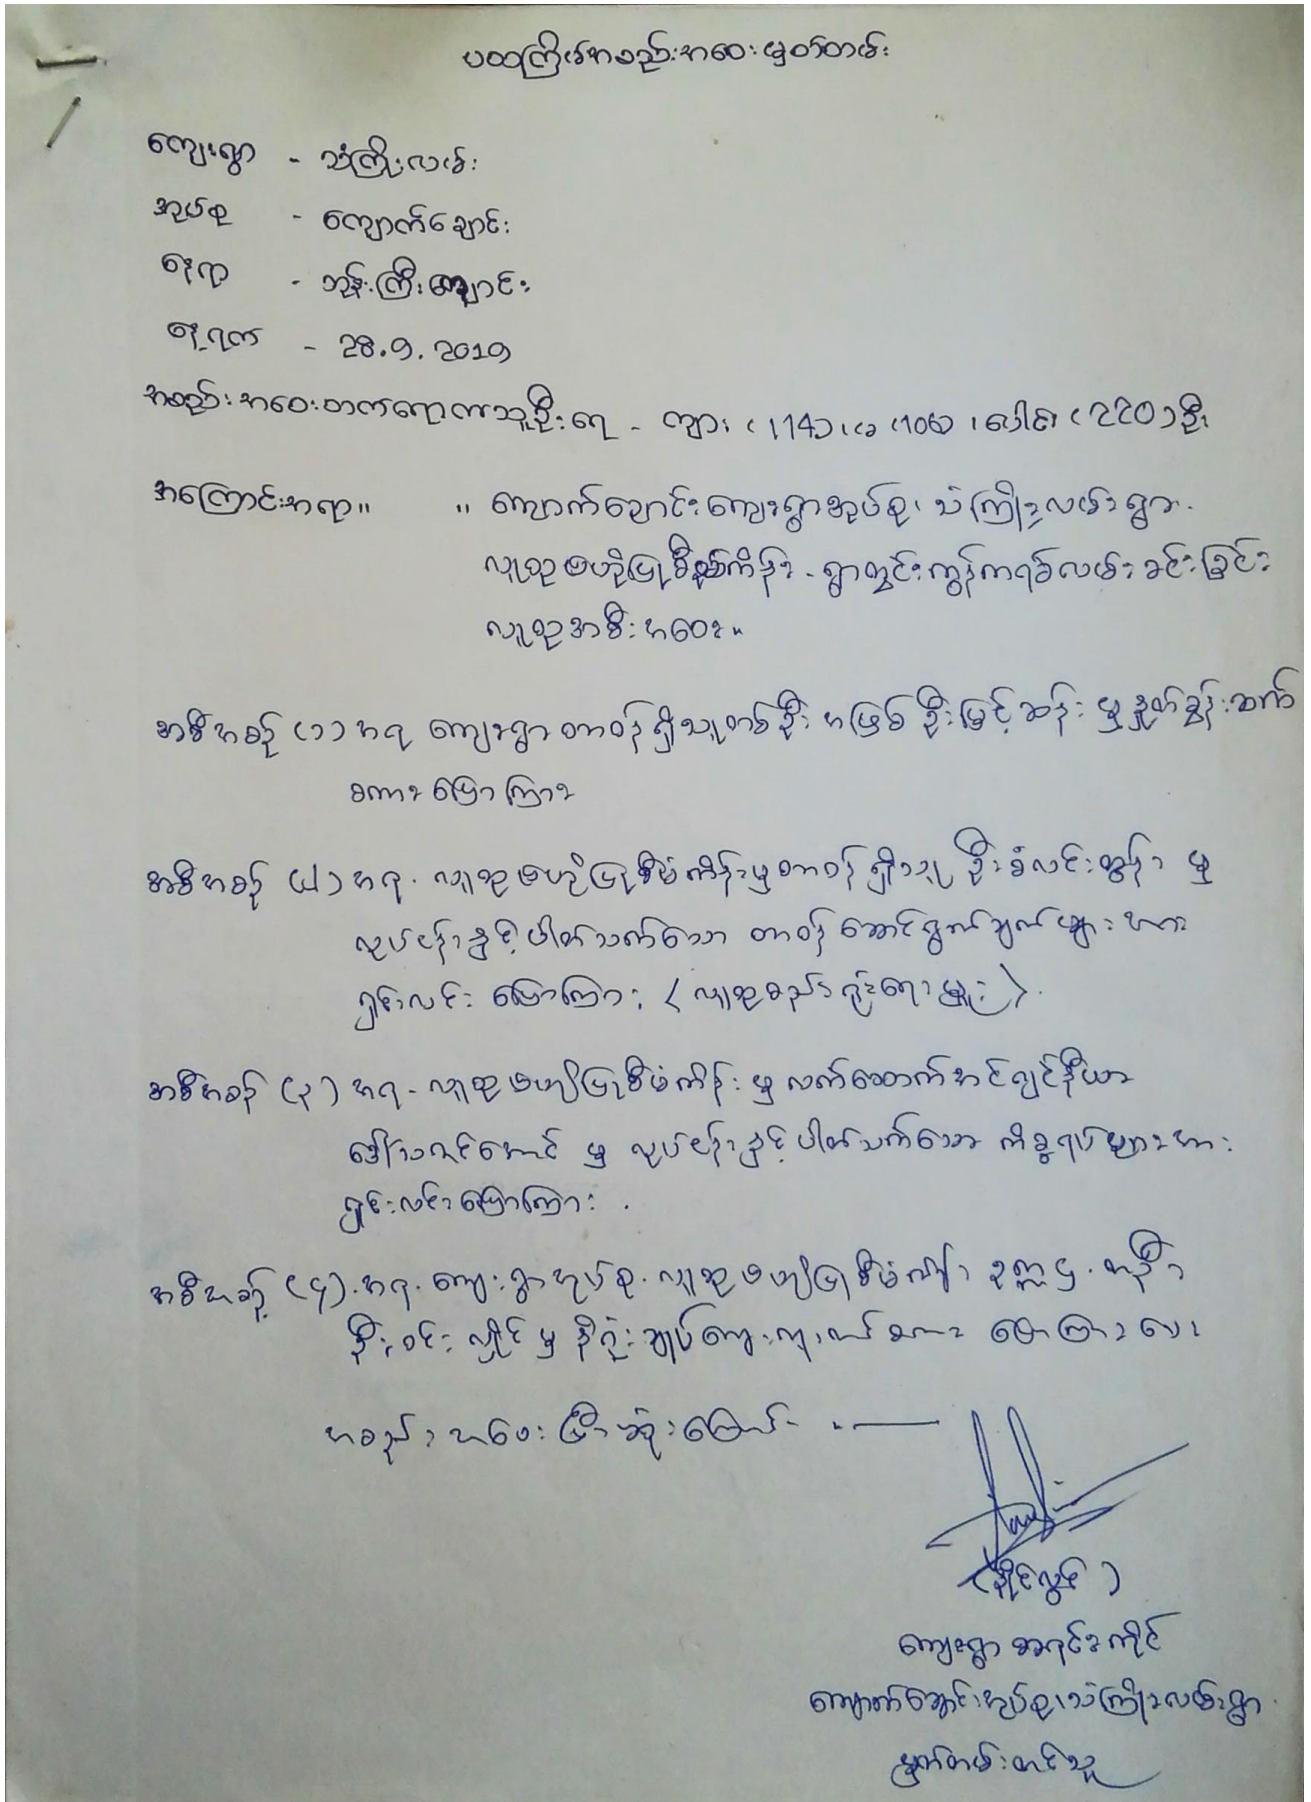 ပထမကြိမ်အစည်းအဝေးမှတ်တမ်း
ကျေးရွာ - သံကြိုးလမ်း
အုပ်စု - ကျောက်ချောင်း
နေရာ - ဘုန်းကြီးကျောင်း
နေ့ရက် - 28.9.2019
အစည်းအဝေးတက်ရောက်သူဦးရေ - ကျား (114) မ (106) ပေါင်း (220) ဦး
အကြောင်းအရာ။ ။ ကျောက်ချောင်းကျေးရွာအုပ်စု၊ သံကြိုးလမ်းရွာ
လူထုဗဟိုပြုစီမံကိန်း - ရွာတွင်းကွန်ကရစ်လမ်းခင်းခြင်း
လူထုအစီးအဝေး။
အစီအစဉ် (၁) အရ ကျေးရွာတာဝန်ရှိသူတစ်ဦး အဖြစ် ဦးမြင့်ဆန်း မှ နှုတ်ခွန်းဆက်
စကားပြောကြား
အစီအစဉ် (၂) အရ - လူထုဗဟိုပြုစီမံကိန်းမှတာဝန်ရှိသူ ဦး လင်းထွန်း မှ
လုပ်ငန်းနှင့်ပါတ်သက်သော တာဝန်ဆောင်ရွက်ချက်များအား
ရှင်းလင်း ပြောကြား (လူထုစည်းရုံးရေးမှူး)
အစီအစဉ် (၃) အရ - လူထုဗဟိုပြုစီမံကိန်း မှ လက်ထောက်အင်ဂျင်နီယာ
ဒေါ် မှ လုပ်ငန်းနှင့်ပါတ်သက်သော ကိစ္စရပ်များအား
ရှင်းလင်းပြောကြား
အစီအစဉ် (၄) အရ - ကျေးရွာအုပ်စု - လူထုဗဟိုပြုစီမံကိန်း ဥက္ကဌ
ဦးဝင်းလှိုင် မှ နိဂုံးချုပ်ကျေးဇူးတင်စကား ပြောကြားပေး
အစည်းအဝေးပြီးဆုံးကြောင်း
(နိုင်လွင်)
ကျေးရွာ စာရင်းကိုင်
ကျောက်ချောင်းအုပ်စု၊ သံကြိုးလမ်းရွာ
မှတ်တမ်းတင်သူ